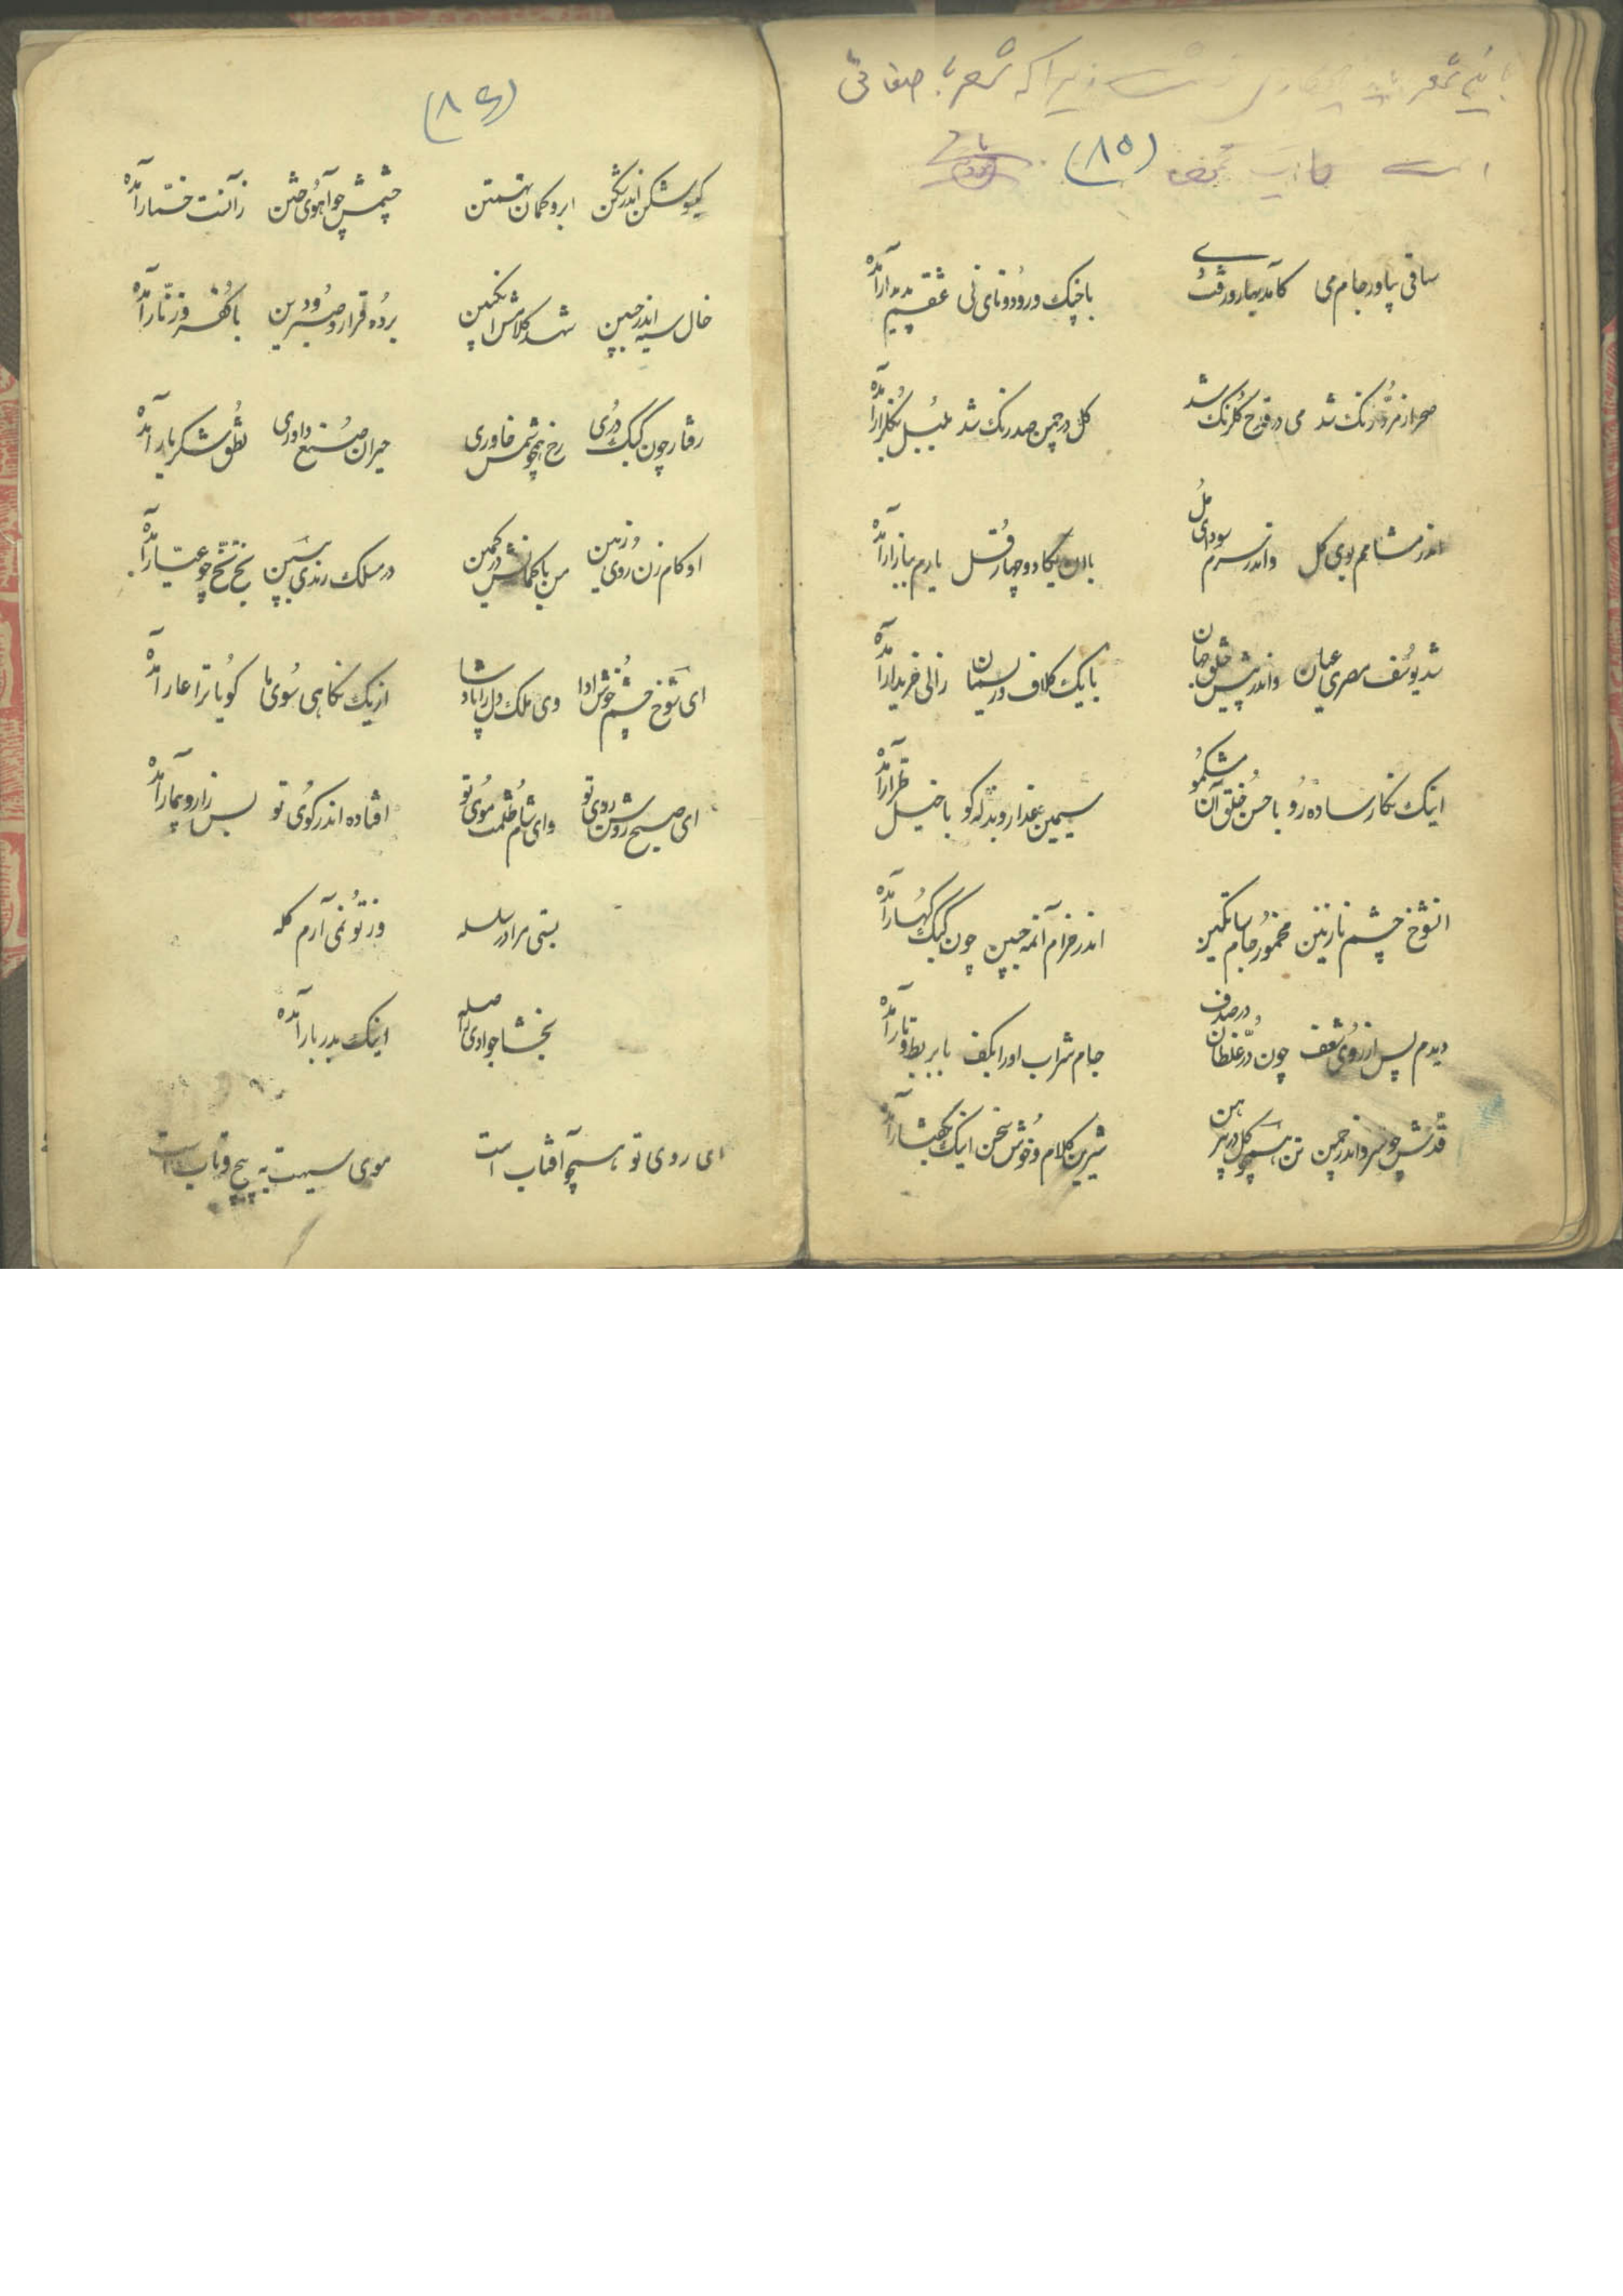 زیرا که شعر با صفائی
است
(۸۵)
ساقی بیاور جام می کآمد بهار و رفت دی با چنگ و رود و نای نی عشقم پدیدار آمده
صحرا زمرد رنگ شد می در قدح گلرنگ شد گل در چمن صد رنگ شد بلبل بگلزار آمده
اندر مشامم بوی گل واندر سرم سودای مل با دو چهار قل یارم ببازار آمده
شد یوسف مصری عیان واندر پیش خلق جهان با یک کلاف ریسمان زالی خریدار آمده
اینک نگار ساده رو با حسن خلق آن مشکمو سیمین عذار و بذله گو با خیل آمده
آنشوخ چشم نازنین مخمور جام ساتکین اندر خرام آن مه جبین چون کبک کهسار آمده
دیدم پس از روی شعف چون در غلطان در صدف جام شراب اورا بکف با بربط و تار آمده
قدش چو سرو اندر چمن تن همچو گل در پیرهن شیرین کلام و خوش سخن اینک آمده
(۸۶)
گیسو شکن اندر شکن ابرو کمان تهمتن چشمش چو آهوی ختن آمده
خال سیه اندر جبین شهد کلامش انگبین برده قرار و صبر و دین با کفر و زنار آمده
رفتار چون کبک دری رخ همچو شمس خاوری حیران صنع داوری نطقش شکربار آمده
او گام زن روی زمین من با کمانش در کمین در مسلک رندی ببین نخ نخ چو عیار آمده
ای شوخ چشم خوش ادا وی ملک دل را پادشا از یک نگاهی سوی ما گویا ترا عار آمده
ای صبح روشن روی تو وای شام ظلمت موی تو افتاده اندر کوی تو بس زار و بیمار آمده
بستی مرا در سلسله وز تو نمی آرم گله
بخشا جوادی را صله اینک بدربار آمده
ای روی تو همچو آفتاب است موی سیهت به پیچ و تاب است